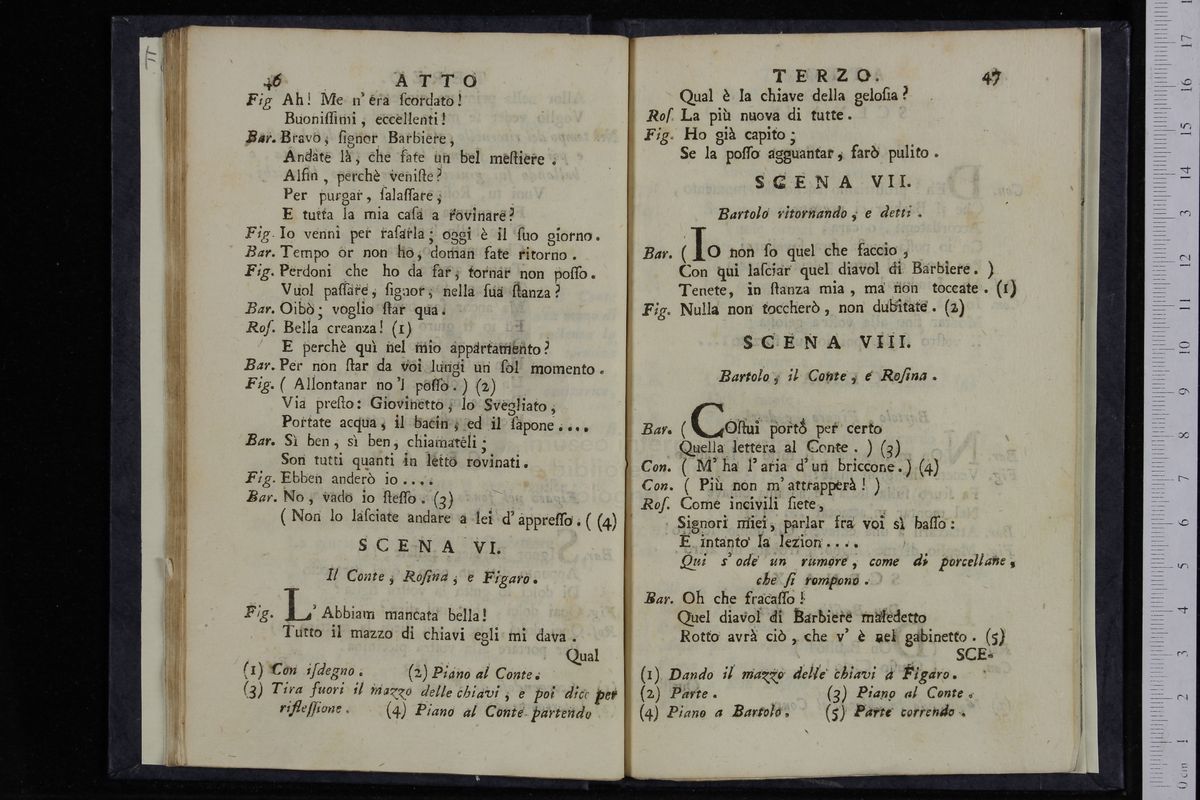 46 ATTO
Fig Ah! Me n'era ſcordato!
Buoniſſimi, eccellenti!
Bar. Bravo, ſignor Barbiere,
Andate là, che fate un bel meſtiere.
Alfin, perchè veniſte?
Per purgar, ſalaſſare,
E tutta la mia caſa a rovinare?
Fig. Io venni per raſarla; oggi è il ſuo giorno.
Bar. Tempo or non ho, doman fate ritorno.
Fig. Perdoni che ho da far, tornar non poſſo.
Vuol paſſare, ſignor, nella ſua ſtanza?
Bar. Oibò; voglio ſtar qua.
Roſ. Bella creanza! (1)
E perchè quì nel mio appartamento?
Bar. Per non ſtar da voi lungi un ſol momento.
Fig. ( Allontanar no'l poſſo. ) (2)
Via preſto: Giovinetto, lo Svegliato,
Portate acqua, il bacin, ed il ſapone....
Bar. Sì ben, sì ben, chiamateli;
Son tutti quanti in letto rovinati.
Fig. Ebben anderò io....
Bar. No, vado io ſteſſo. (3)
( Non lo laſciate andare a lei d'appreſſo. ( (4)
SCENA VI.
Il Conte, Roſina, e Figaro.
Fig. L'Abbiam mancata bella!
Tutto il mazzo di chiavi egli mi dava.
Qual
(1) Con iſdegno. (2) Piano al Conte.
(3) Tira fuori il mazzo delle chiavi, e poi dice per
rifleſſione. (4) Piano al Conte partendo
TERZO. 47
Qual è la chiave della geloſia?
Roſ. La più nuova di tutte.
Fig. Ho già capito;
Se la poſſo agguantar, farò pulito.
SCENA VII.
Bartolo ritornando, e detti.
Bar. ( Io non ſo quel che faccio,
Con qui laſciar quel diavol di Barbiere. )
Tenete, in ſtanza mia, ma non toccate. (1)
Fig. Nulla non toccherò, non dubitate. (2)
SCENA VIII.
Bartolo, il Conte, e Roſina.
Bar. ( COſtui portò per certo
Quella lettera al Conte. ) (3)
Con. ( M'ha l'aria d'un briccone.) (4)
Con. ( Più non m'attrapperà! )
Roſ. Come incivili ſiete,
Signori miei, parlar fra voi sì baſſo:
E intanto la lezion....
Qui s'ode un rumore, come di porcellane,
che ſi rompono.
Bar. Oh che fracaſſo!
Quel diavol di Barbiere maledetto
Rotto avrà ciò, che v'è nel gabinetto. (5)
SCE-
(1) Dando il mazzo delle chiavi a Figaro.
(2) Parte. (3) Piano al Conte.
(4) Piano a Bartolo. (5) Parte correndo.